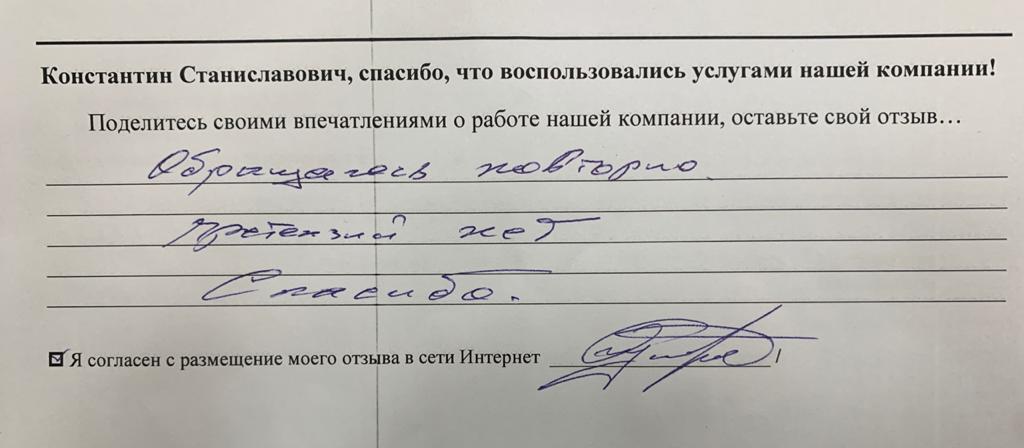 Константин Станиславович, спасибо, что воспользовались услугами нашей компании!
Поделитесь своими впечатлениями о работе нашей компании, оставьте свой отзыв…
Обращаюсь повторно.
Претензий нет
Спасибо.
Я согласен с размещение моего отзыва в сети Интернет /